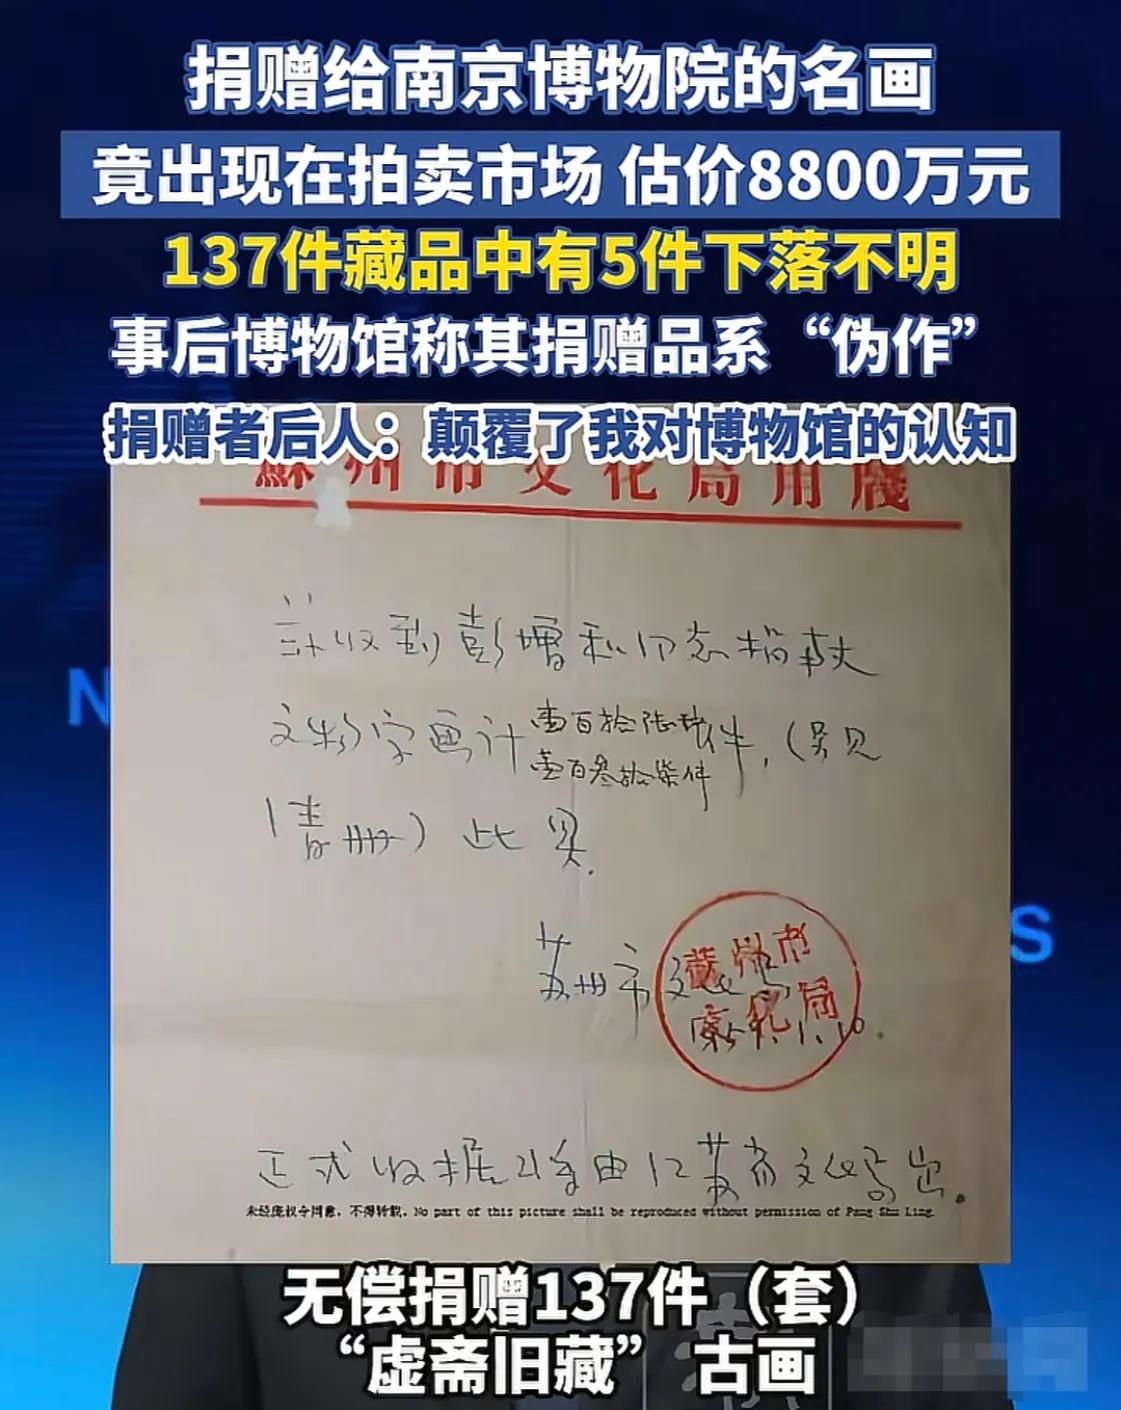 捐赠给南京博物院的名画
竟出现在拍卖市场 估价8800万元
137件藏品中有5件下落不明
事后博物馆称其捐赠品系“伪作”
捐赠者后人：颠覆了我对博物馆的认知
蘇州市文化局用牋
兹收到 同志捐献
文物字画计壹百拾陆 件，（另见
壹百叁拾柒件
清册）此具.
苏州市文化局
蘇州市
文化局
正式收据将由江苏省文化局出.
未经庞叔令同意，不得转载。No part of this picture shall be reproduced without permission of Pang Shu Ling.
无偿捐赠137件（套）
“虚斋旧藏” 古画